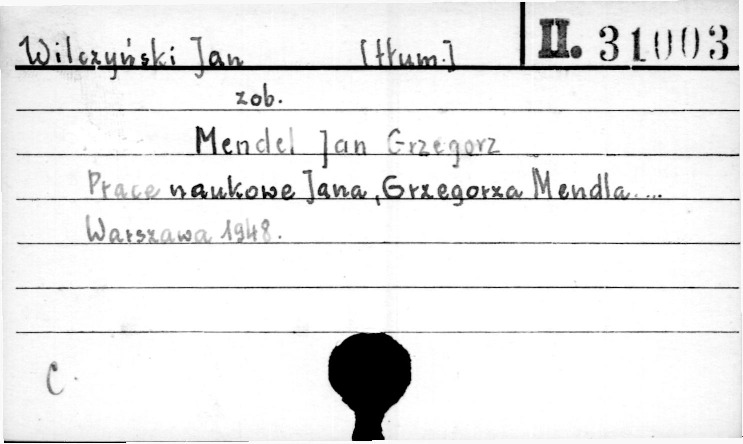 Wilczyński Jan [tłum.] II. 31003
zob.
Mendel Jan Grzegorz
Prace naukowe Jana, Grzegorza Mendla....
Warszawa 1948.
C.